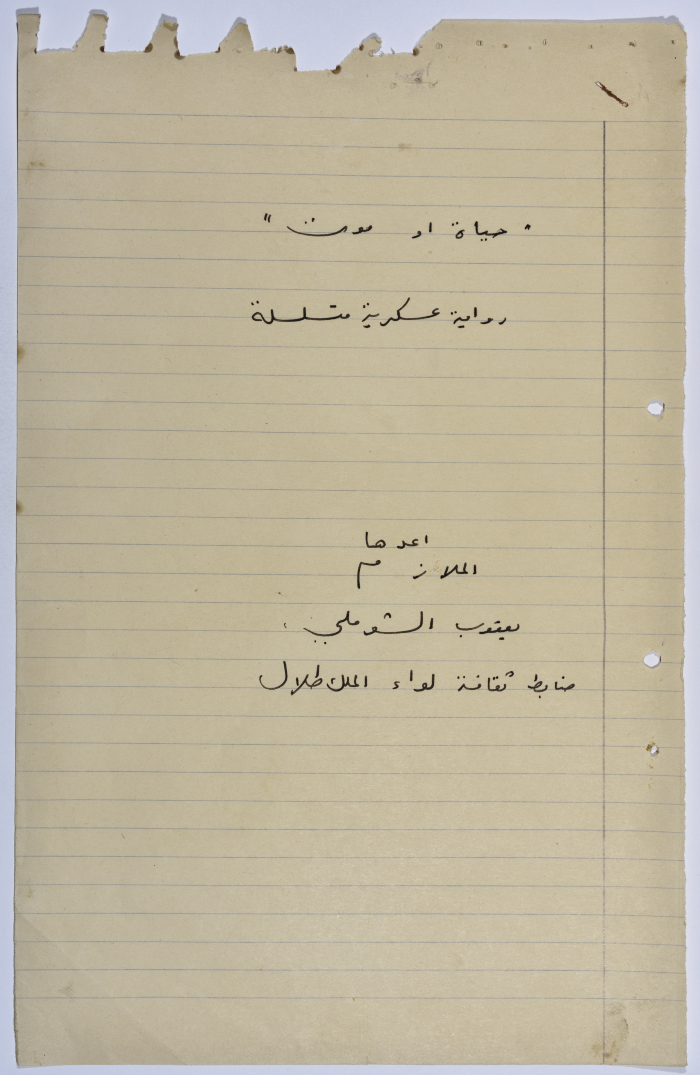 "حياة او موت"
رواية عسكرية متسلسلة
اعدها
الملازم
يعقوب الشوملي
ضابط ثقافة لواء الملك طلال